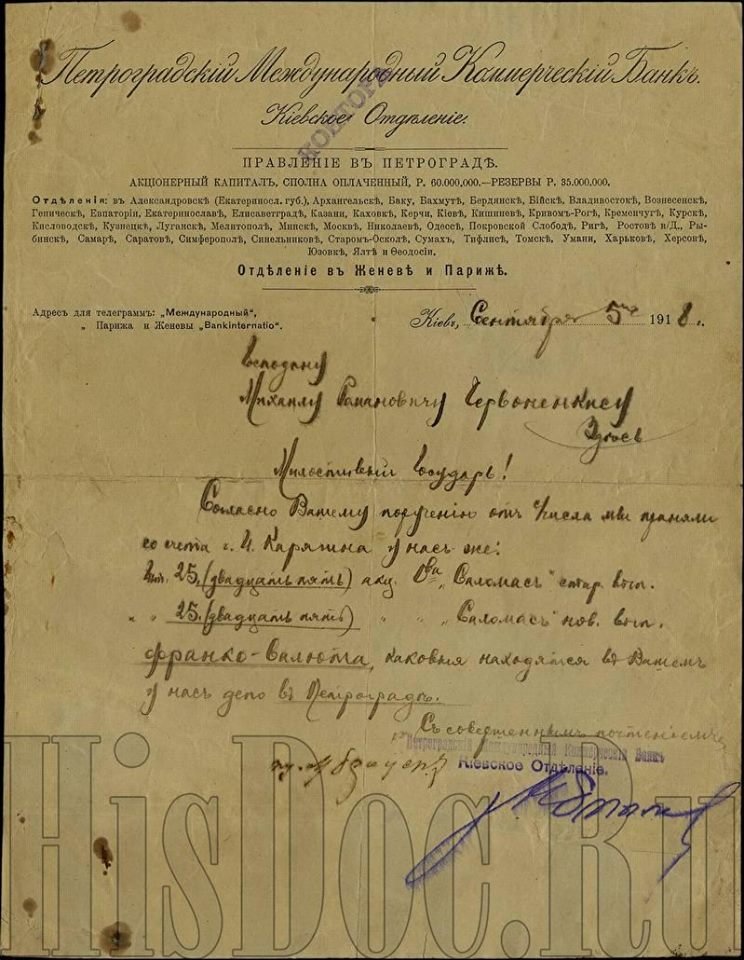 Петроградскій Международный Коммерческій Банкъ.
Кіевское Отдѣленіе.
КОНТОРА
ПРАВЛЕНІЕ ВЪ ПЕТРОГРАДѢ.
АКЦІОНЕРНЫЙ КАПИТАЛЪ, СПОЛНА ОПЛАЧЕННЫЙ, Р. 60.000,000.—РЕЗЕРВЫ Р. 35.000,000.
Отдѣленія: въ Александровскѣ (Екатеринос. губ.), Архангельскѣ, Баку, Бахмутѣ, Бердянскѣ, Бійскѣ, Владивостокѣ, Вознесенскѣ,
Геническѣ, Евпаторіи, Екатеринославѣ, Елисаветградѣ, Казани, Каховкѣ, Керчи, Кіевѣ, Кишиневѣ, Кривомъ-Рогѣ, Кременчугѣ, Курскѣ,
Кисловодскѣ, Кузнецкѣ, Луганскѣ, Мелитополѣ, Минскѣ, Москвѣ, Николаевѣ, Одессѣ, Покровской Слободѣ, Ригѣ, Ростовѣ н/Д., Ры-
бинскѣ, Самарѣ, Саратовѣ, Симферополѣ, Синельниковѣ, Старомъ-Осколѣ, Сумахъ, Тифлисѣ, Томскѣ, Умани, Харьковѣ, Херсонѣ,
Юзовкѣ, Ялтѣ и Ѳеодосіи.
Отдѣленіе въ Женевѣ и Парижѣ.
Адресъ для телеграммъ: „Международный“,
„ Парижа и Женевы „Bankinternatio“.
Кіевъ, Сентября 5го 1918 г.
Господину
Михаилу Романовичу Червоненкису
Здѣсь
Милостивый Государь!
Согласно Вашему порученію отъ числа мы приняли
со счета г. И. Каряжна у насъ же:
25. (двадцать пять) акц. О-ва „Саломасъ“ стар. вып.
„ „ 25. (двадцать пять) „ „ „Саломасъ“ нов. вып.
франко-валюта, каковыя находятся въ Вашемъ
у насъ депо въ Петроградѣ.
Съ совершеннымъ почтеніемъ
Петроградскій Международный Коммерческій Банкъ
Кіевское Отдѣленіе.
HisDoc.Ru